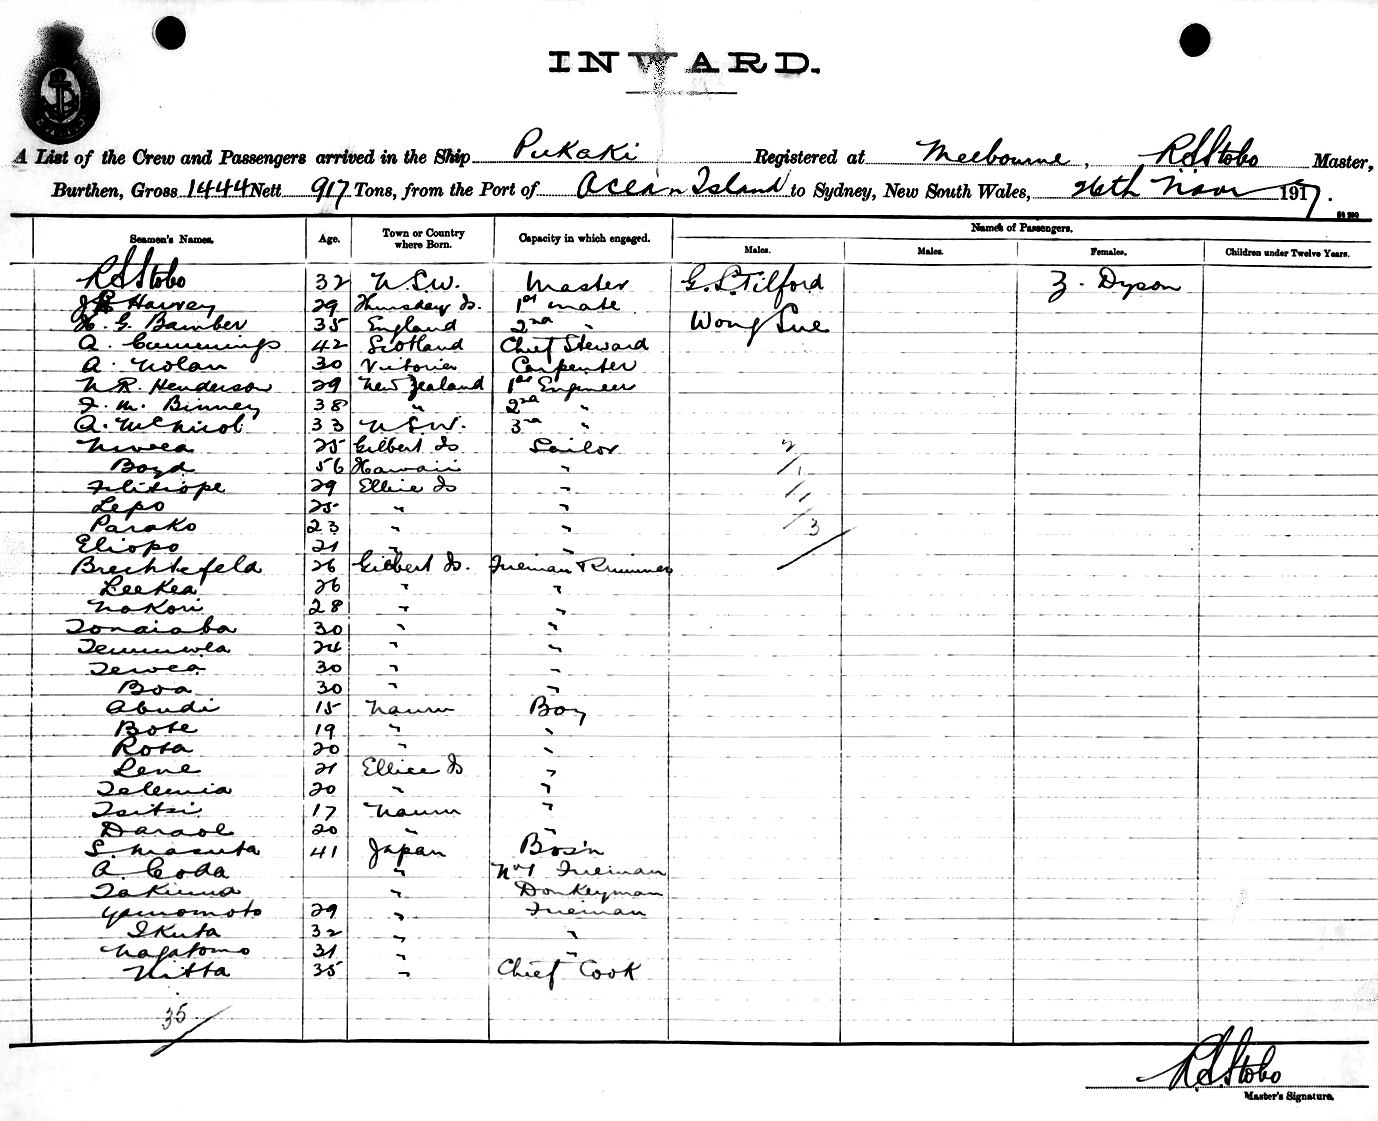 INWARD.
A List of the Crew and Passengers arrived in the Ship Pukaki Registered at Melbourne, R S Stobo Master,
Burthen, Gross 1444 Nett 917 Tons, from the Port of Ocean Island to Sydney, New South Wales, 26th Novr 1917.
Names of Passengers.
Seamen's Names. Age. Town or Country where Born. Capacity in which engaged. Males. Males. Females. Children under Twelve Years.
R S Stobo 32 N.S.W. Master G. S. Tilford Z. Dyson
Harvey 29 Thursday Is. 1st mate
H. G. Bamber 35 England 2nd " Wong Sue
A. Cummings 42 Scotland Chief Steward
A. Nolan 30 Victoria Carpenter
N. R. Henderson 29 New Zealand 1st Engineer
F. M. Binney 38 " 2nd "
A. McNicol 33 N.S.W. 3rd "
25 Gilbert Is Sailor
Boyd 56 Hawaii "
29 Ellice Is "
Lepo 25 " "
Parako 23 " "
Eliopo 21 " "
Brechtefeld 26 Gilbert Is. Fireman & Trimmer
Leekea 26 " "
Nakori 28 " "
Tonaiaba 30 " "
24 " "
Tewea 30 " "
Boa 30 " "
Abudi 15 Nauru Boy
Bote 19 " "
Rosa 20 " "
Lene 21 Ellice Is "
Telemia 20 " "
Tsitsi 17 Nauru "
Daraoe 20 " "
S. Masuta 41 Japan Bos'n
A. Coda " No 1 Fireman
Takiuna " Donkeyman
Yamomoto 29 " Fireman
Ikuta 32 " "
Nagatomo 31 " "
Nitta 35 " Chief Cook
2
1
3
35
R. S. Stobo
Master's Signature.